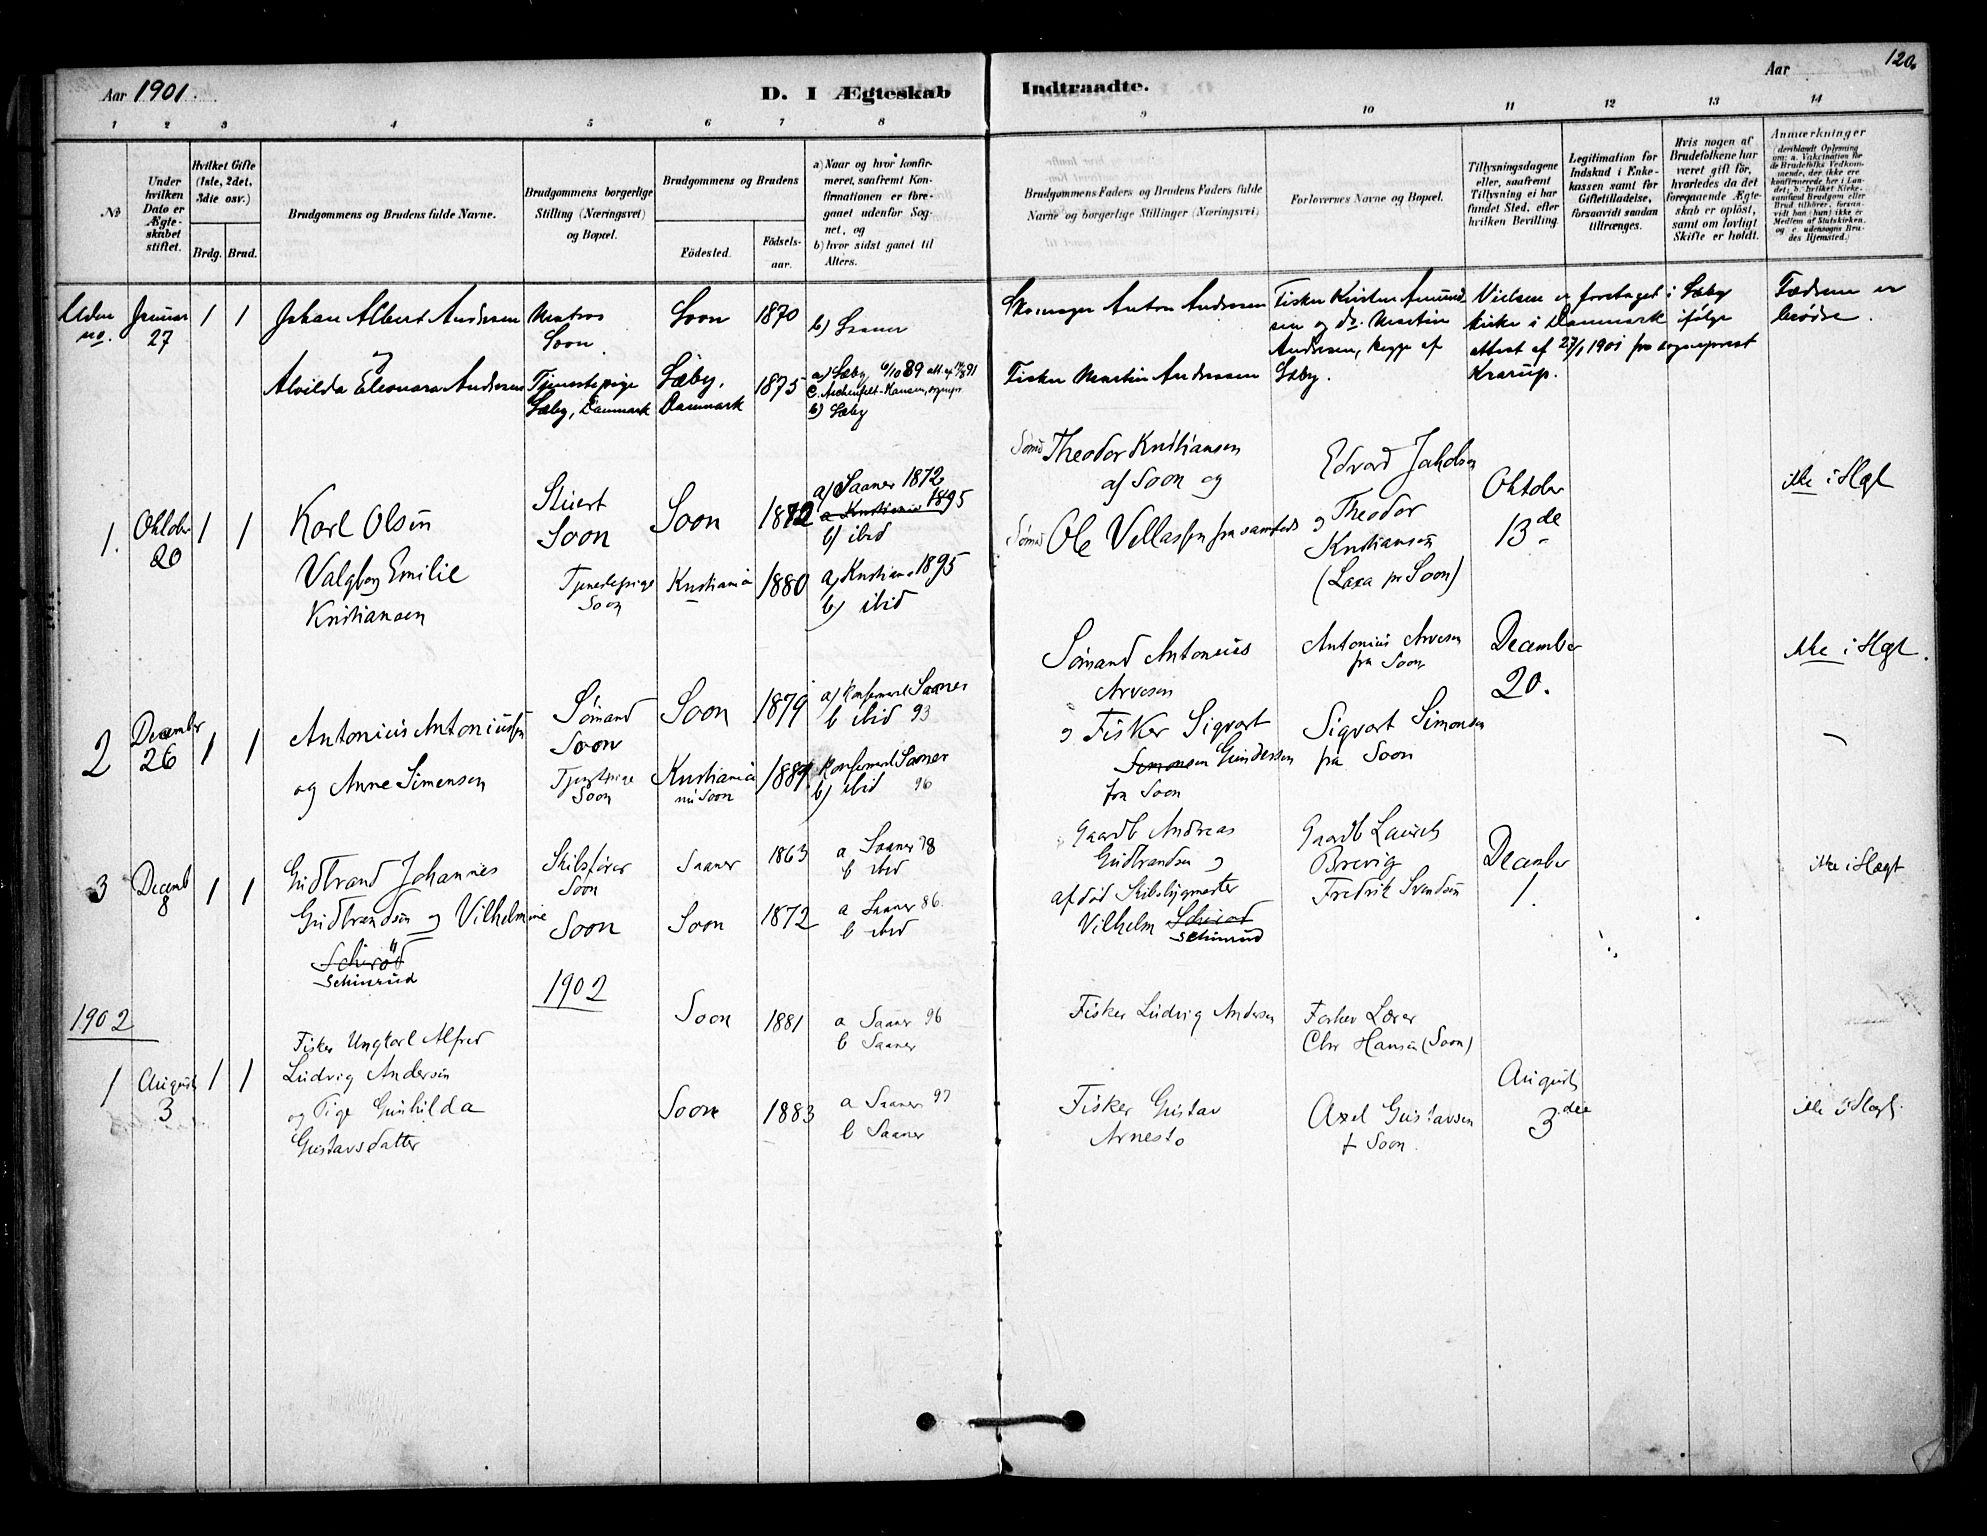 Aar 1901.
D. I Ægteskab
Indtraadte.
Aar
120.
1 2 3 4 5 6 7 8 9 10 11 12 13 14
№
Under hvilken Dato er Ægteskabet stiftet.
Hvilket Gifte (1ste, 2det, 3die osv.)
Brdg. Brud.
Brudgommens og Brudens fulde Navne.
Brudgommens borgerlige Stilling (Næringsvei) og Bopæl.
Brudgommens og Brudens
Födested.
Födsels-aar.
a) Naar og hvor konfirmeret, saafremt Konfirmationen er foregaaet udenfor Sognet, og
b) hvor sidst gaaet til Alters.
Brudgommens Faders og Brudens Faders fulde Navne og borgerlige Stillinger (Næringsvei)
Forlovernes Navne og Bopæl.
Tillysningsdagene eller, saafremt Tillysning ei har fundet Sted, efter hvilken Bevilling.
Legitimation for Indskud i Enkekassen samt for Giftetilladelse, forsaavidt saadan tiltrænges.
Hvis nogen af Brudefolkene har været gift för, hvorledes da det foregaaende Ægteskab er oplöst, samt om lovligt Skifte er holdt.
Anmærkninger (deriblandt Oplysning om: a. Vakcination for de Brudefolks Vedkommende, der ikke ere konfirmerede her i Landet; b. hvilket Kirkesamfund Brudgom eller Brud tilhörer, forsaavidt han (hun) ikke er Medlem af Statskirken, og c. udensogns Brudes Hjemsted.)
Uden no.
Januar 27
1 1
Johan Albert Andersen
og
Alvilda Eleonora Andersen
Matros
Soon.
Tjenestepige
Sæby, Danmark
Soon
Sæby,
Danmark
1870
1875
b) Saaner
a) Sæby 6/10 89
b) Sæby
Skomager Anton Andersen
Fisker Martin Andersen
Fisker Kristen Amund
sen og do. Martin
Andersen, begge af
Sæby.
Vielsen er foretaget i Sæby
kirke i Danmark ifølge
attest af 27/1 1901 fra sogneprest
Krarup.
Fædrene er
brødre.
1.
Oktober
20
1 1
Karl Olsen
Valgborg Emilie
Kristiansen
Stuert
Soon
Tjenestepige
Soon
Soon
Kristiania
1872
1880
a) Saaner 1872
a Kristiania 1895
b) ibid
a) Kristiania 1895
b) ibid
Sømd Theodor Kristiansen
af Soon og
Sømd Ole Vellassen fra samsteds
Edvard Jakobsen
og Theodor
Kristiansen
(Laxa pr Soon)
Oktober
13de
ikke i Slgt
2
December
26
1 1
Antonius Antoniussen
og Anne Simensen
Sømand
Soon
Tjenstpige
Soon
Soon
Kristiania
nu Soon
1879
188
a) Konfirmeret Saaner
b ibid 93
Konfirmeret Saaner
b) ibid 96
Sømand Antonius
Arvesen
og Fisker Sigvart
Simonsen Gundersen
fra Soon
Antonius Arvesen
fra Soon
Sigvart Simonsen
fra Soon
December
20.
ikke i Slgt.
3
Decemb
8
1 1
Gudbrand Johannes
Gudbrandsen og Vilhelmine
Schirød
Schinrud
Skibsfører
Soon
Soon
Saaner
Soon
1863
1872
a Saaner 78
b ibid
a Saaner 86.
b ibid
Gaardb Andreas
Gudbrandsen og
afdød Skibsbygmester
Vilhelm
Schinrud
Gaardb Laurits
Brevig
Fredrik Svendsen
December
1.
ikke i Slægt
1902
1902
1
August
3
1 1
Fisker Ungkarl Alfred
Ludvig Andersen
og Pige Gunhilda
Gustavsdatter
Soon
Soon
1881
1883
a Saaner 96
b Saaner
a Saaner 97
b Saaner
Fisker Ludvig Andersen
Fisker Gustav
Arnesto
Forhev Lærer
Chr Hansen (Soon)
Axel Gustavsen
f Soon.
August
3die
ikke i Slegt.